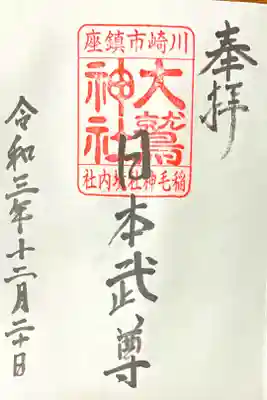 奉拝
川崎市鎮座
大鷲
神社
稲毛神社境内社
日本武尊
令和三年十二月二十日